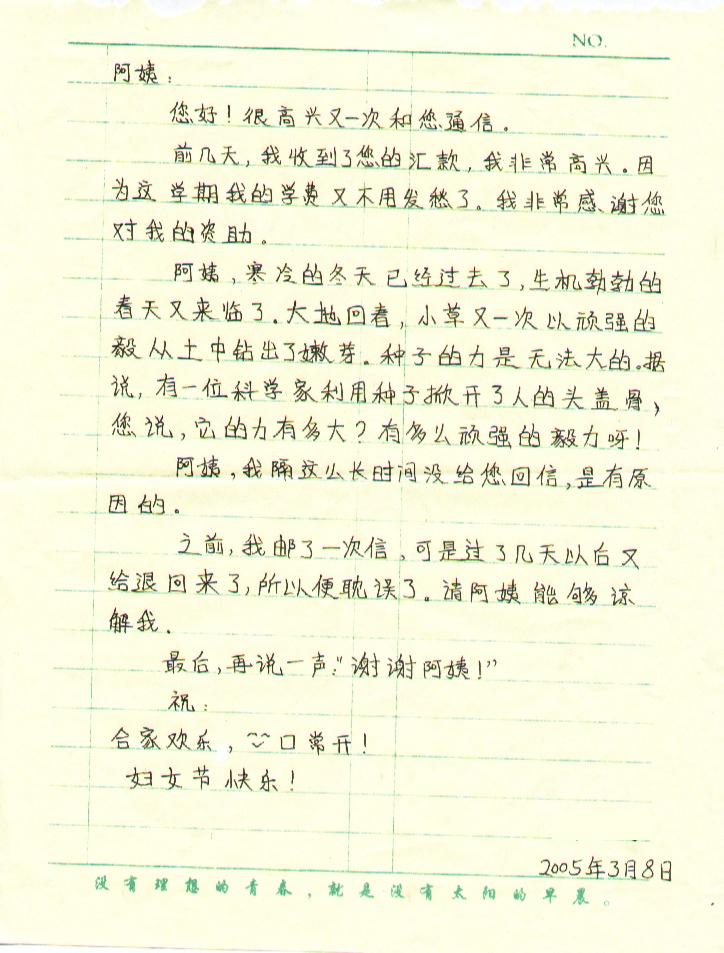 NO.
阿姨：
您好！很高兴又一次和您通信。
前几天，我收到了您的汇款，我非常高兴。因
为这学期我的学费又不用发愁了。我非常感谢您
对我的资助。
阿姨，寒冷的冬天已经过去了，生机勃勃的
春天又来临了。大地回春，小草又一次以顽强的
毅从土中钻出了嫩芽。种子的力是无法大的。据
说，有一位科学家利用种子掀开了人的头盖骨，
您说，它的力有多大？有多么顽强的毅力呀！
阿姨，我隔这么长时间没给您回信，是有原
因的。
之前，我邮了一次信，可是过了几天以后又
给退回来了，所以便耽误了。请阿姨能够谅
解我.
最后，再说一声：“谢谢阿姨！”
祝：
合家欢乐，口常开！
妇女节快乐！
2005年3月8日
没有理想的青春，就是没有太阳的早晨。